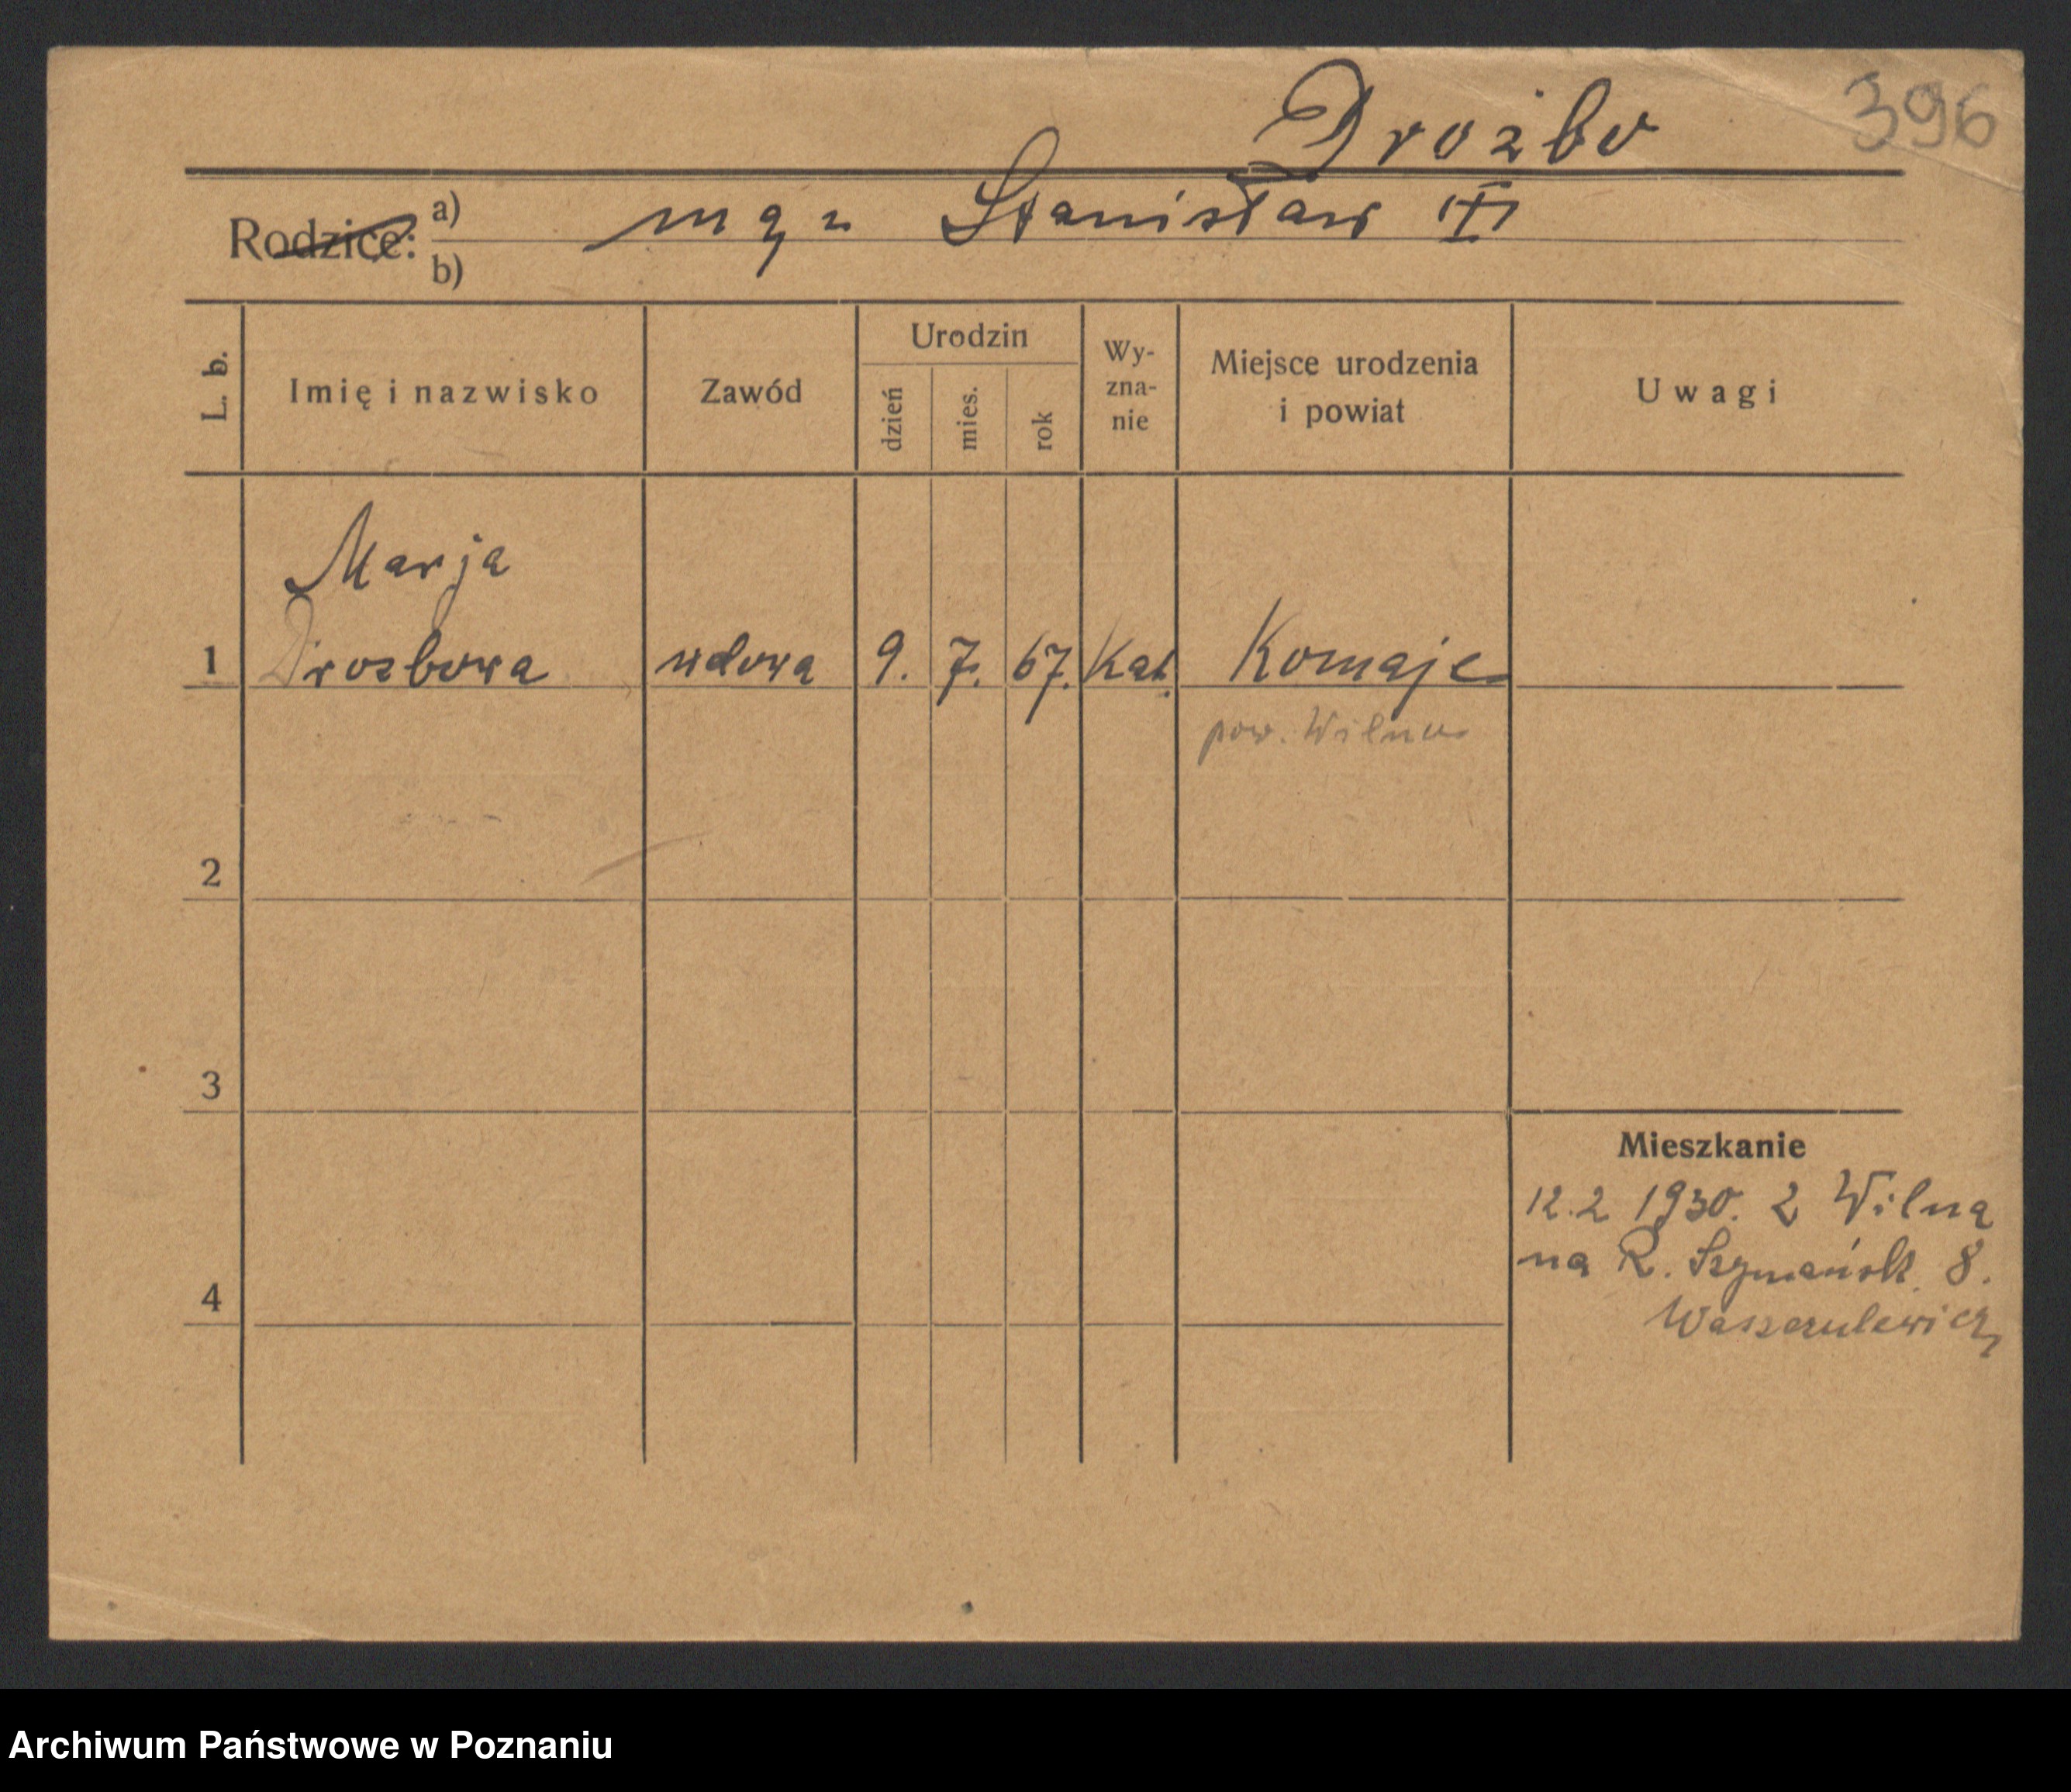 Drozbo
396
Rodzice: a) mąż Stanisław III
b)
L. b.
Imię i nazwisko
Zawód
Urodzin
dzień
mies.
rok
Wy-
zna-
nie
Miejsce urodzenia
i powiat
Uwagi
Marja
1 Drozbowa wdowa 9. 7. 67. Kat. Komaje
pow. Wilna
2
3
4
Mieszkanie
12.2 1930. z Wilna
na R. Szymańsk. 8.
Archiwum Państwowe w Poznaniu